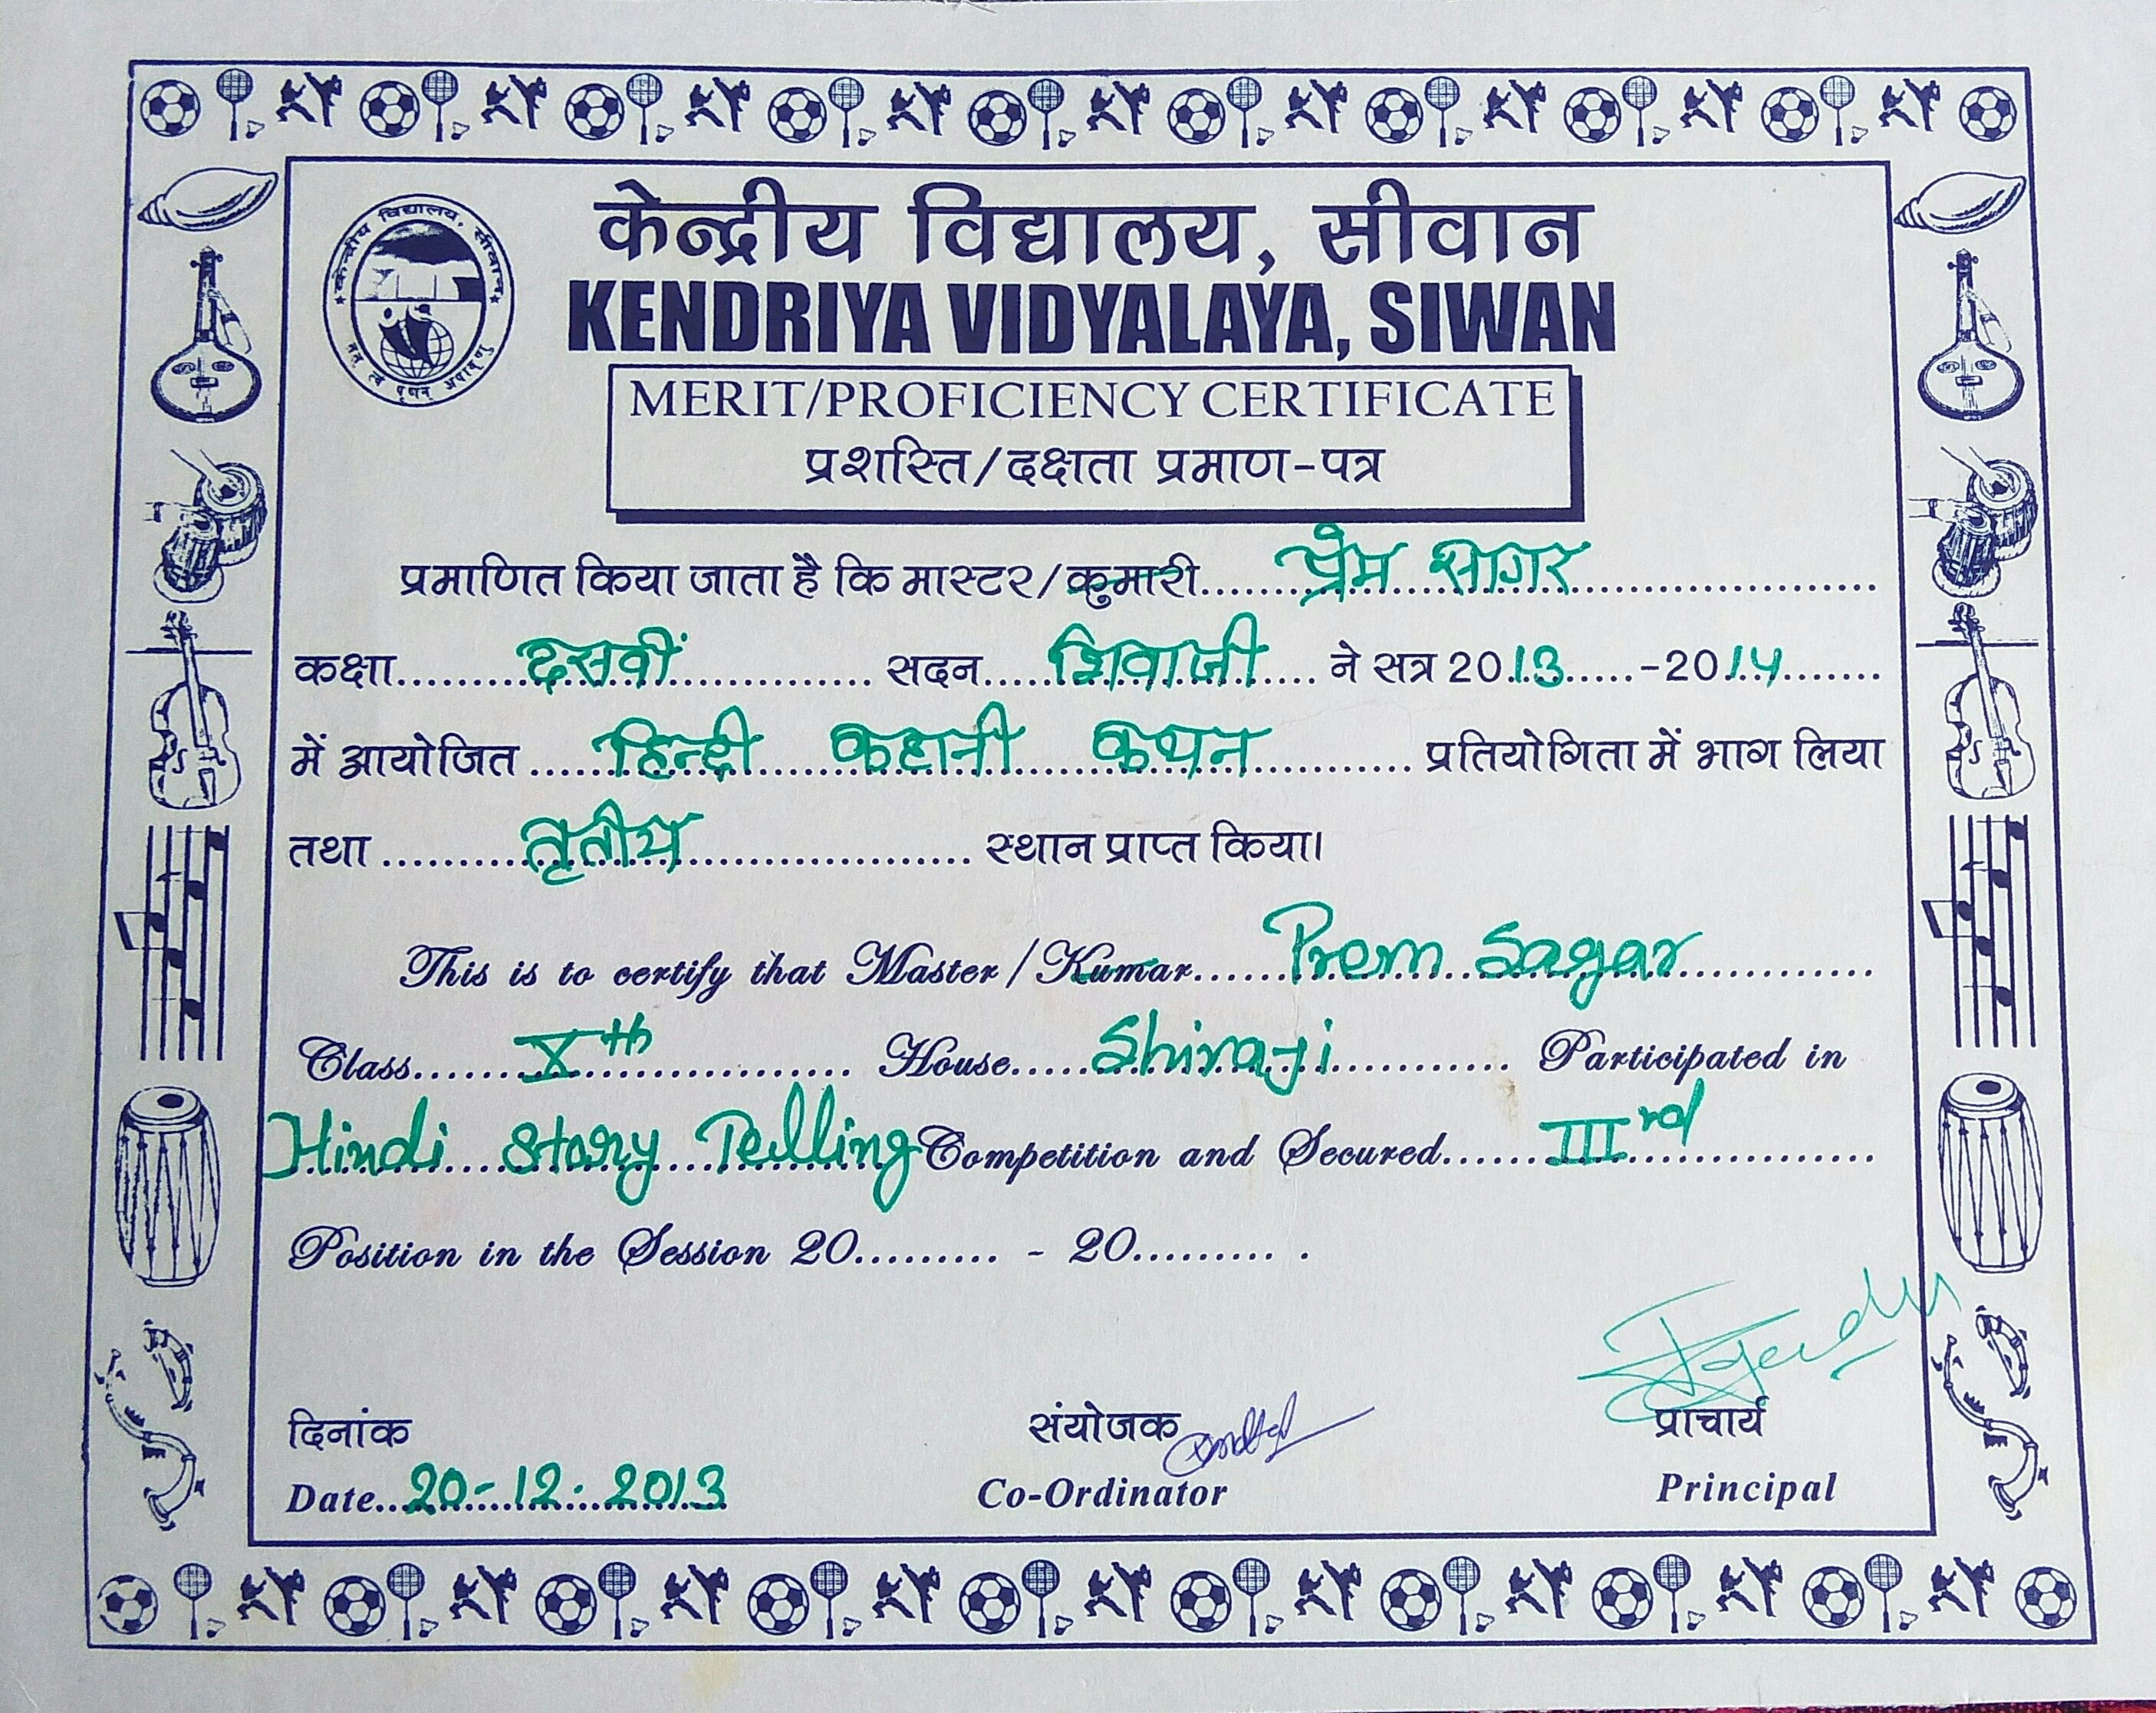 केन्द्रीय विद्यालय, सीवान
केन्द्रीय विद्यालय, सीवान
तत् त्वं पूषन् अपावृणु
KENDRIYA VIDYALAYA, SIWAN
MERIT/PROFICIENCY CERTIFICATE
प्रशस्ति/दक्षता प्रमाण-पत्र
प्रमाणित किया जाता है कि मास्टर/कुमारी..........प्रेम सागर..........
कक्षा..........दसवीं.......... सदन.....शिवाजी..... ने सत्र 2013.....-2014........
में आयोजित ......हिन्दी कहानी कथन.......... प्रतियोगिता में भाग लिया
तथा ..........तृतीय.......... स्थान प्राप्त किया।
This is to certify that Master/Kumar......Prem Sagar..........
Class.......Xth.......... House......Shivaji.......... Participated in
Hindi Story Telling Competition and Secured......IIIrd..........
Position in the Session 20......... - 20......... .
दिनांक
संयोजक
प्राचार्य
Date...20-12-2013
Co-Ordinator
Principal